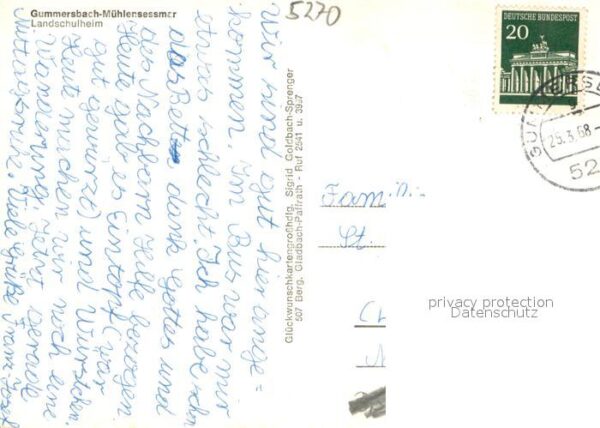 Gummersbach-Mühlensessmar
Landschulheim
5270
Wir sind gut hier ange=
kommen. Im Bus war mir
etwas schlecht. Ich habe schn
das Bett dank Gottes und
des Nachbarn Hilfe bezogen.
Heut gab es Eintopf (war
gut gewürzt) und Würstchen.
Heute machen wir noch eine
Wanderung. Jetzt gerade
Mittagsruh. Viele Grüße Franz-Josef
Glückwunschkartengroßhdlg. Sigrid Goldbach-Sprenger
507 Berg. Gladbach-Paffrath - Ruf 2541 u. 3967
DEUTSCHE BUNDESPOST
20
25.3.68
52
Fami
St.
privacy protection
Datenschutz